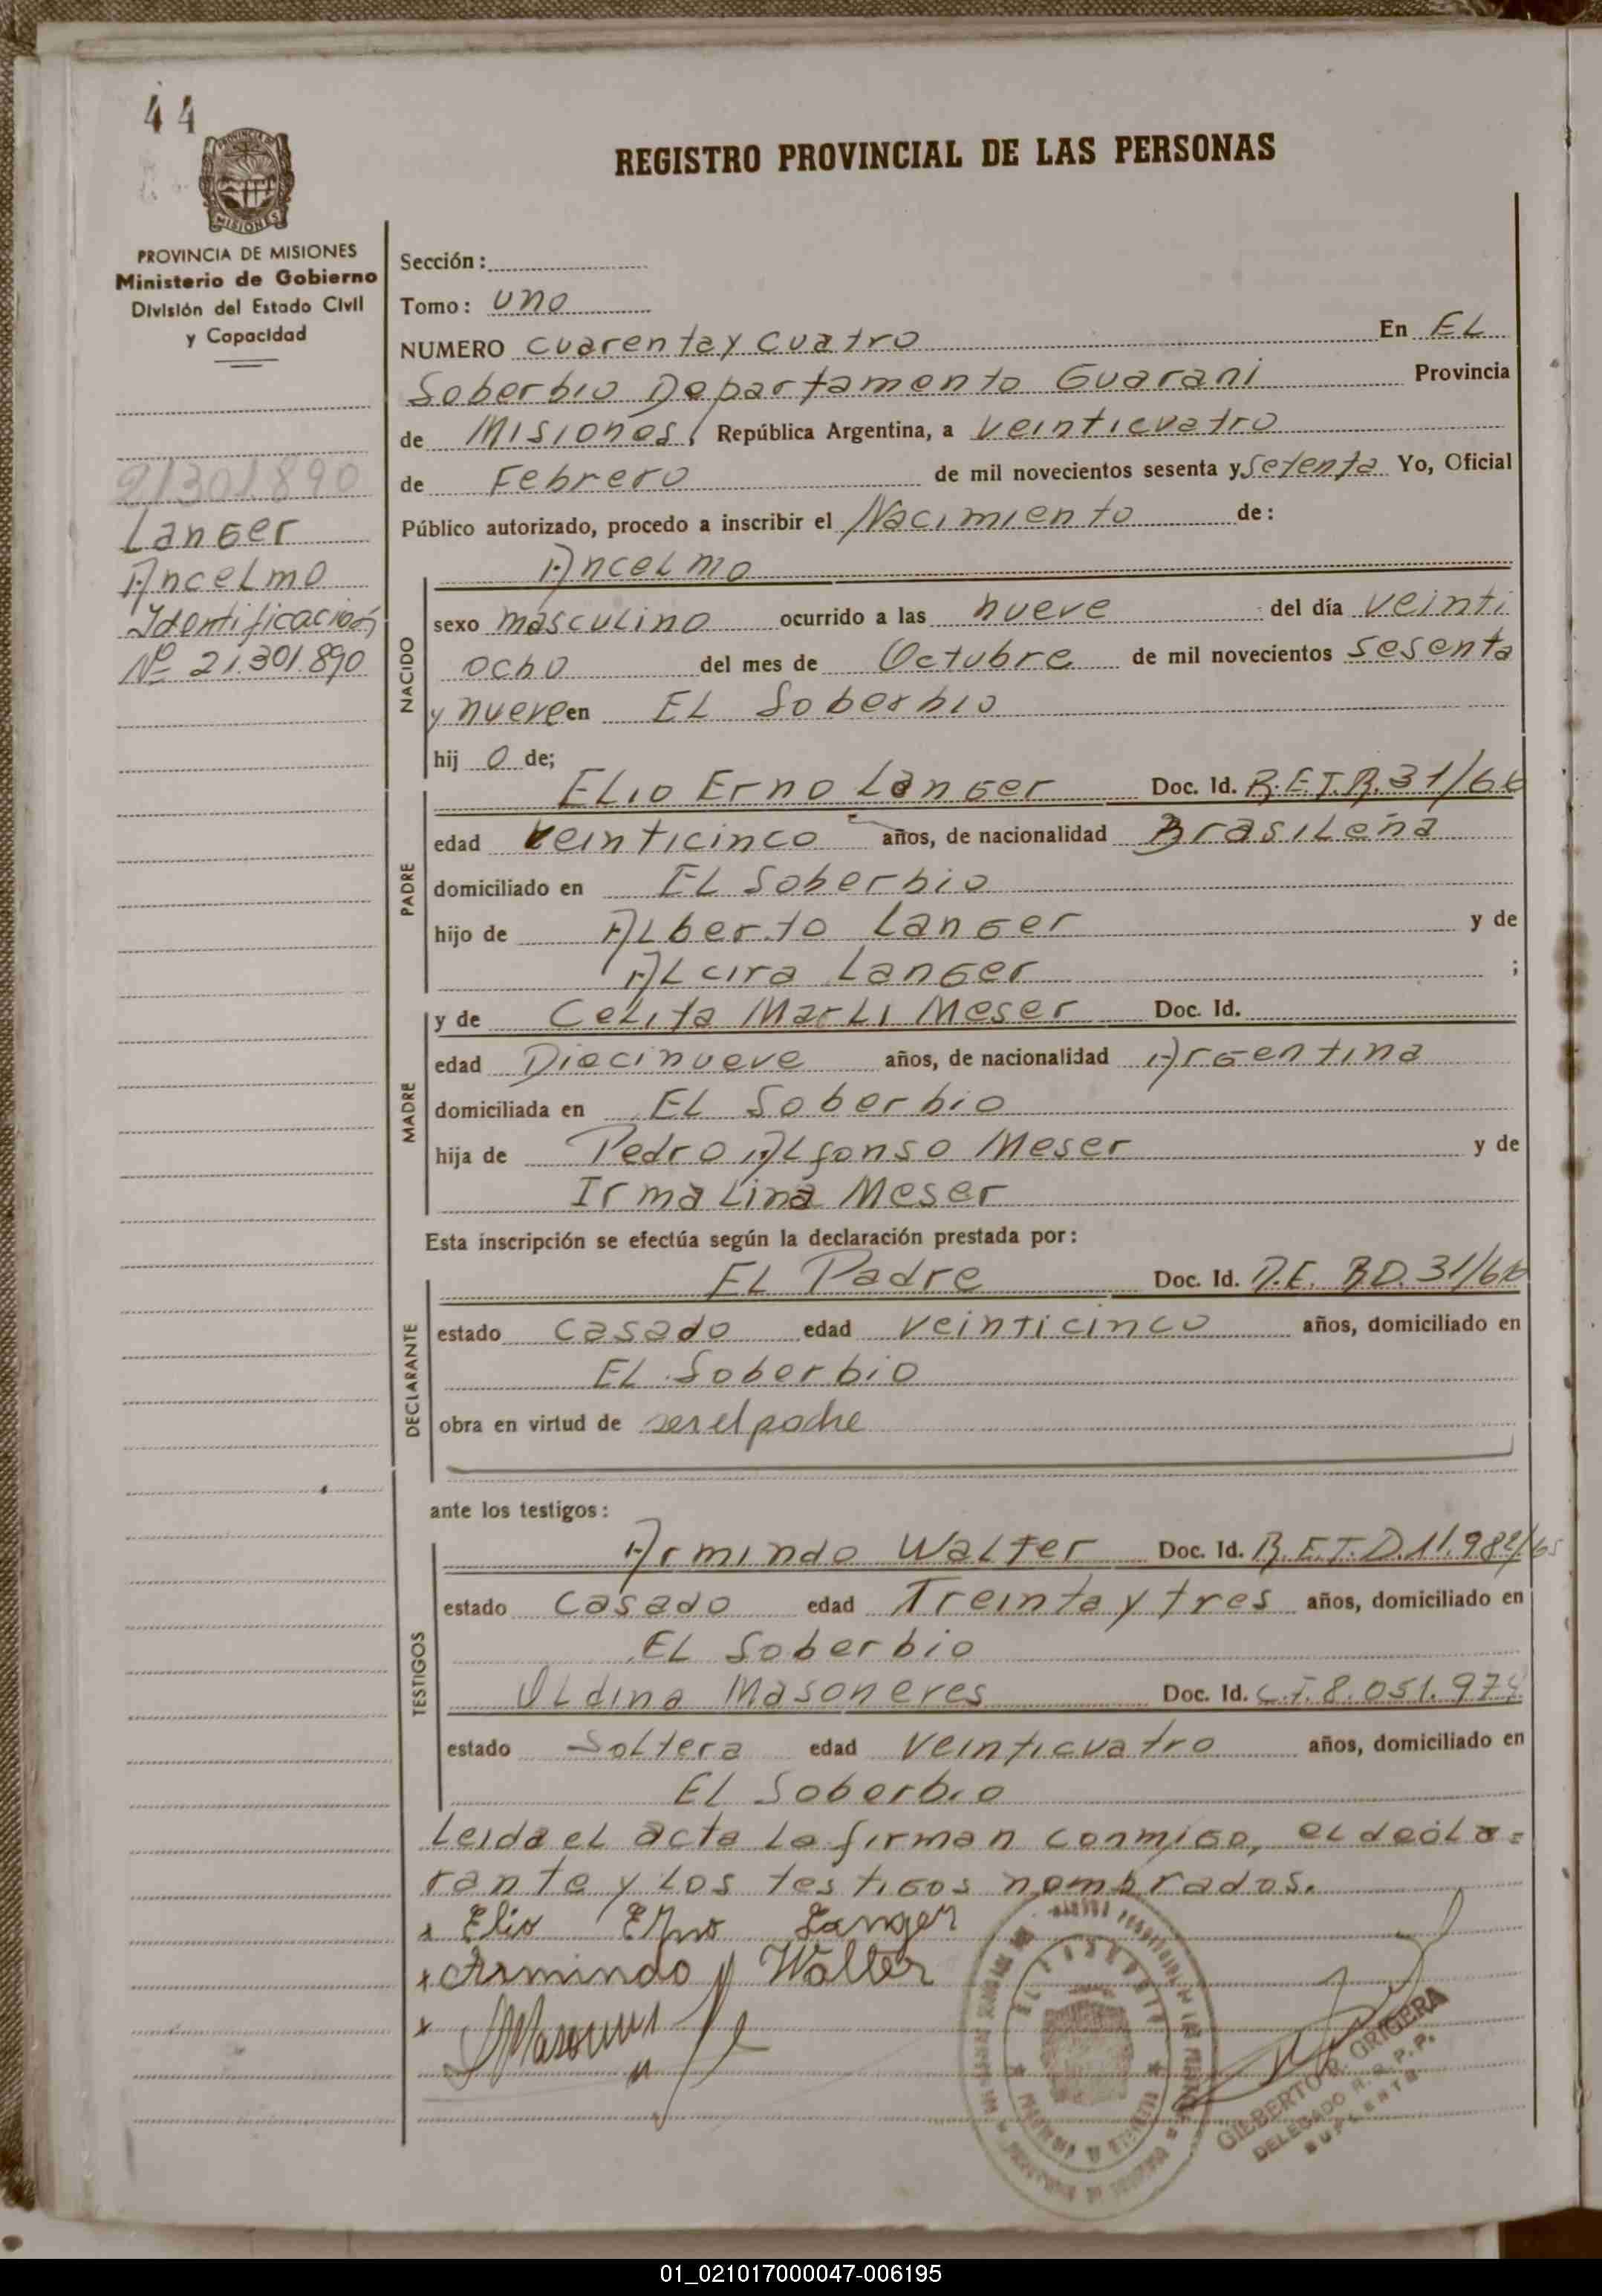 44
REGISTRO PROVINCIAL DE LAS PERSONAS
PROVINCIA DE MISIONES
Ministerio de Gobierno
División del Estado Civil
y Capacidad
21301890
Langer
Ancelmo
Identificación
Nº 21.301.890
Sección:
Tomo: uno
NUMERO cuarenta y cuatro En EL
Soberbio Departamento Guarani Provincia
de Misiones, República Argentina, a veinticuatro
de Febrero de mil novecientos sesenta y setenta Yo, Oficial
Público autorizado, procedo a inscribir el Nacimiento de:
NACIDO
Ancelmo
sexo masculino ocurrido a las nueve del día veinti
ocho del mes de Octubre de mil novecientos sesenta
y nueve en EL Soberbio
hijo de;
PADRE
Elio Erno Langer Doc. Id. R.E.T.R. 31/68
edad veinticinco años, de nacionalidad Brasileña
domiciliado en EL Soberbio
hijo de Alberto Langer y de
Alcira Langer ;
MADRE
y de Celita Marli Meser Doc. Id.
edad Diecinueve años, de nacionalidad Argentina
domiciliada en EL Soberbio
hija de Pedro Alfonso Meser y de
Irma Lina Meser
Esta inscripción se efectúa según la declaración prestada por:
DECLARANTE
EL Padre Doc. Id. 31/68
estado casado edad veinticinco años, domiciliado en
EL Soberbio
obra en virtud de ser el padre
ante los testigos:
TESTIGOS
Armindo Walter Doc. Id. R.E.T.D. 11.982/65
estado casado edad Treinta y tres años, domiciliado en
EL Soberbio
Masoneres Doc. Id. C.I. 8.051.974
estado Soltera edad veinticuatro años, domiciliado en
EL Soberbio
Leida el acta la firman conmigo, el decla=
rante y los testigos nombrados.
x Elio Erno Langer
x Armindo Walter
x
EL SOBERBIO
GILBERTO R. GRIGERA
DELEGADO R. P. P.
SUPLENTE
01_021017000047-006195